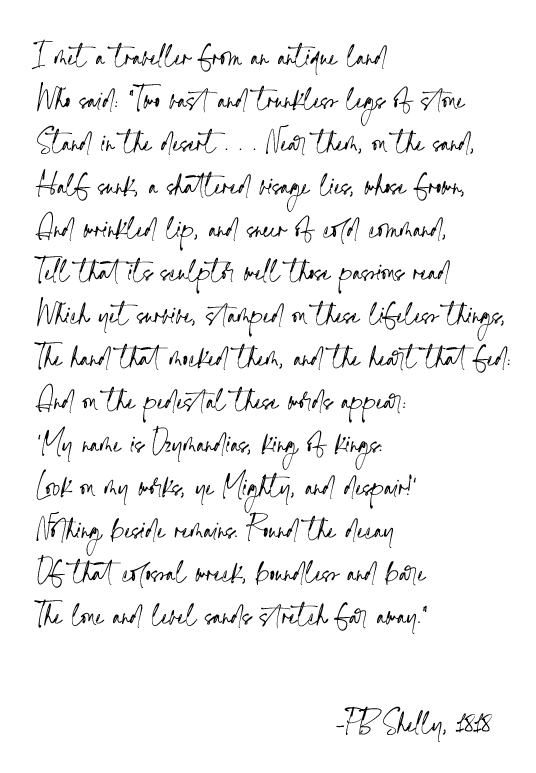 I met a traveller from an antique land
Who said: "Two vast and trunkless legs of stone
Stand in the desert . . . Near them, on the sand,
Half sunk, a shattered visage lies, whose frown,
And wrinkled lip, and sneer of cold command,
Tell that its sculptor well those passions read
Which yet survive, stamped on these lifeless things,
The hand that mocked them, and the heart that fed:
And on the pedestal these words appear:
'My name is Ozymandias, king of kings:
Look on my works, ye Mighty, and despair!'
Nothing beside remains. Round the decay
Of that colossal wreck, boundless and bare
The lone and level sands stretch far away."
-PB Shelly, 1818